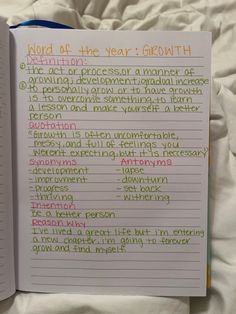 Word of the year: GROWTH
Definition:
① the act or process, or a manner of
growing; development; gradual increase
② to personally grow or to have growth
is to overcome something, to learn
a lesson and make yourself a better
person
Quotation
"Growth is often uncomfortable,
messy, and full of feelings you
weren't expecting but it is neccessary"
Synonyms Antonyms
-development -lapse
-improvment -downturn
-progress -set back
-thriving -withering
Intention
Be a better person
Reason Why
I've lived a great life but i'm entering
a new chapter. i'm going to forever
grow and find myself.